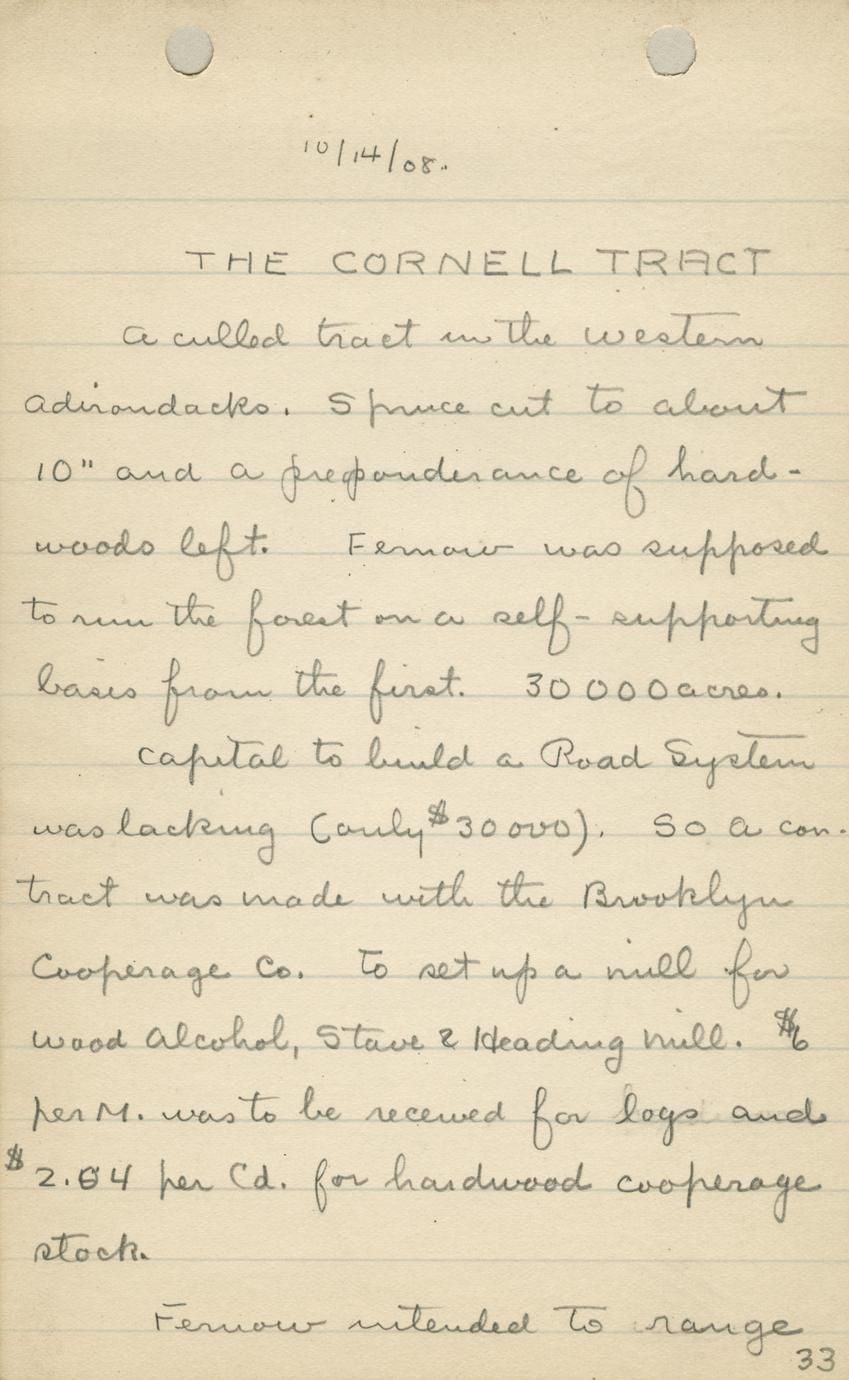 10/14/08.
THE CORNELL TRACT
A culled tract in the western
Adirondacks. Spruce cut to about
10" and a preponderance of hard-
woods left. Fernow was supposed
to run the forest on a self-supporting
basis from the first. 30000 acres.
Capital to build a Road System
was lacking (only $30000). So a con-
tract was made with the Brooklyn
Cooperage Co. to set up a mill for
wood Alcohol, Stave & Heading Mill. $6
per M. was to be received for logs and
$2.04 per Cd. for hardwood cooperage
stock.
Fernow intended to range
33